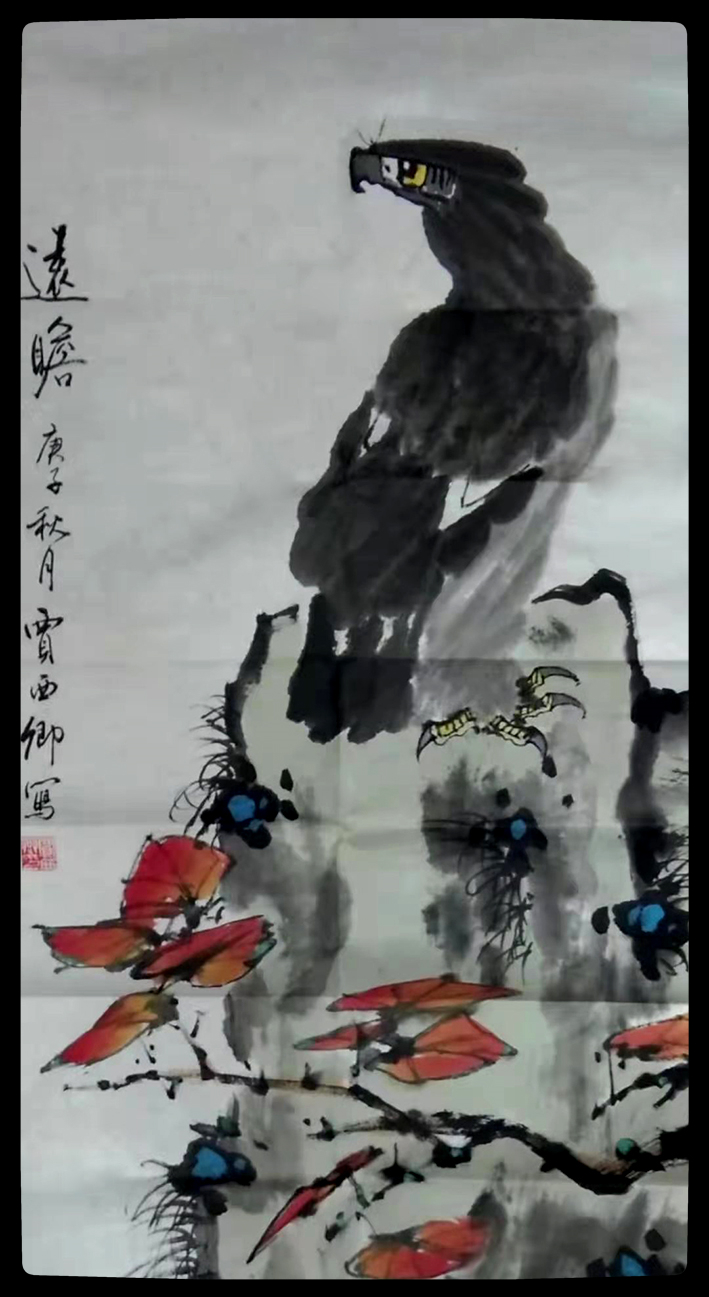 遠瞻
庚子秋月賈西卿寫